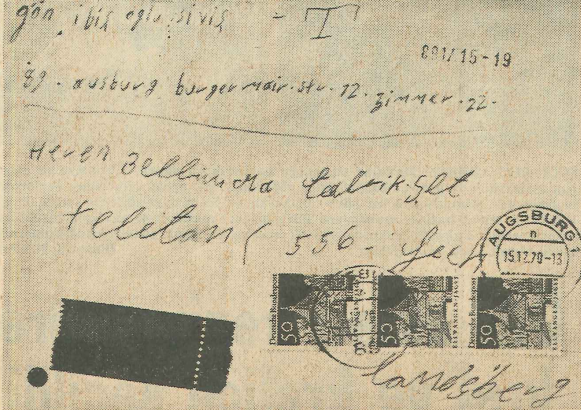 gön. ibiş oglu sivis = I
891/15-19
89. ausburg burgermair.str.12. zimmer.22.
Heren Bellinda Fabrik.
teleton ( 556 -
AUGSBURG 1
n
15.12.70-13
Deutsche Bundespost 50 ELLWANGEN/JAGST
Deutsche Bundespost 50 ELLWANGEN/JAGST
Deutsche Bundespost 50 ELLWANGEN/JAGST
landsberg